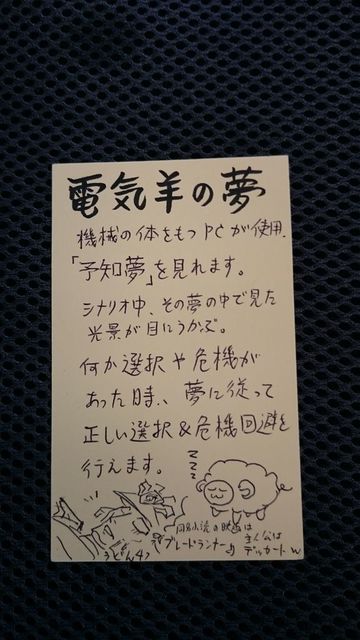 電気羊の夢
機械の体をもつPCが使用.
「予知夢」を見れます。
シナリオ中、その夢の中で見た
光景が目にうかぶ。
何か選択や危機が
あった時、夢に従って
正しい選択&危機回避を
行えます。
zzz
同名小説の映画は
「ブレードランナー」
主人公は
デッカード w
うどん4つ